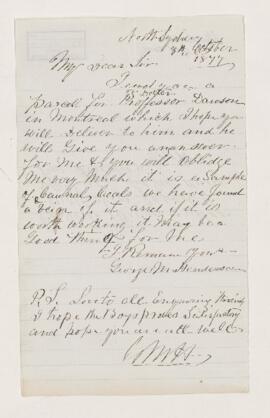 North Sydney
8th October
1877
My Dear Sir
I send you a
parcell for Professor Dawson
or Doctor
in Montreal which I hope you
will deliver to him and he
will Give you an answer
for Me & you will Oblidge
Me very Much it is a Sample
of Cannal Coals we have found
a veign of it and if it is
worth working it May be a
Good thing for Me
I Remain Yours
George
P.S. all Enquiring
I hope the Boys proves Satisfactory
and hope you are all well